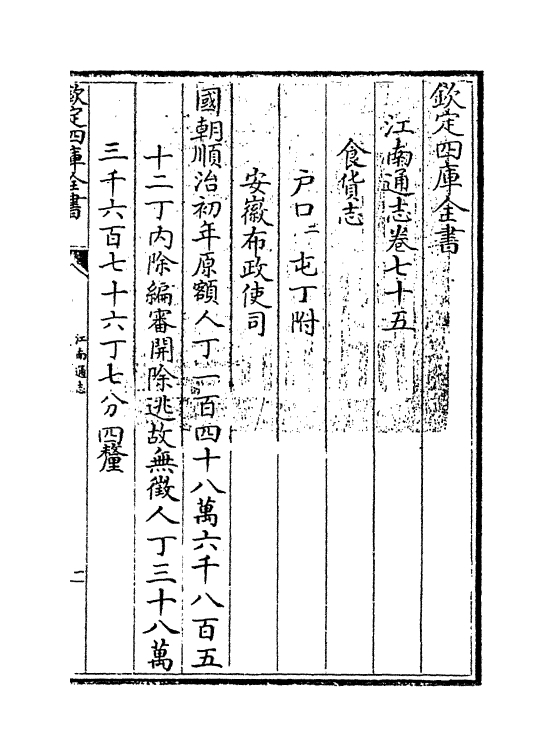 欽定四庫全書
江南通志卷七十五
食貨志
户口二 屯丁附
安徽布政使司
國朝順治初年原額人丁一百四十八萬六千八百五
十二丁内除編審開除逃故無徵人丁三十八萬
三千六百七十六丁七分四釐
欽定四庫全書
江南通志